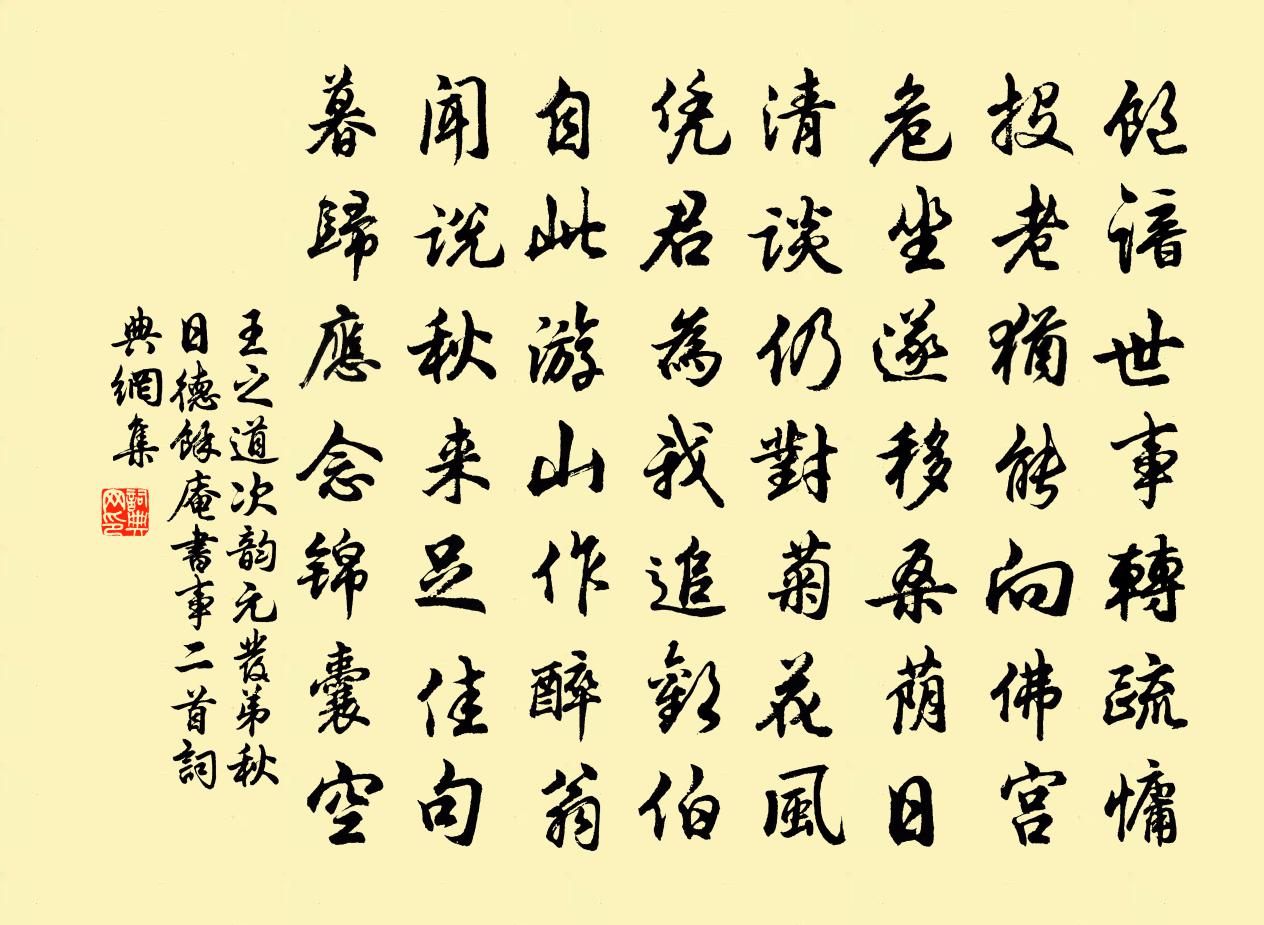 飽諳世事轉疏慵
投老猶能向佛宫
危坐遂移桑荫日
清談仍對菊花風
凭君為我追歡伯
自此游山作醉翁
聞説秋来足佳句
暮歸應念锦囊空
王之道次韵元發弟秋
日德餘庵書事二首詞
典網集
詞典
网印